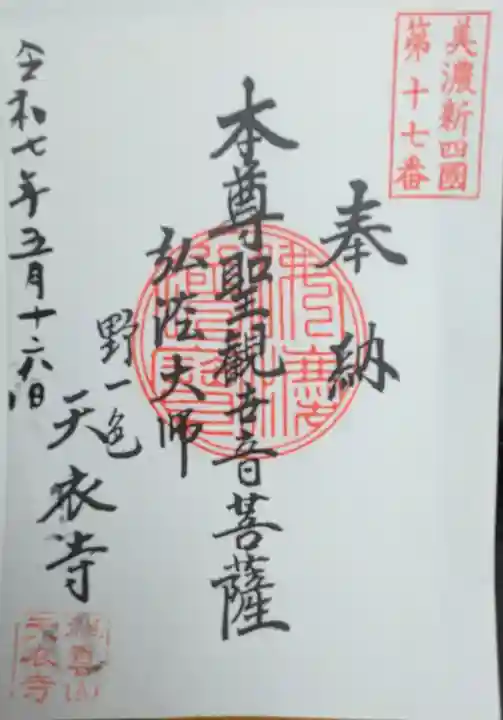 美濃新四國
第十七番
奉納
本尊聖観世音菩薩
弘法大師
野一色
天衣寺
令和七年五月十六日
天衣寺